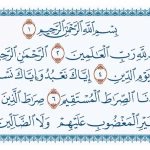 بِسْمِ اللَّهِ الرَّحْمَٰنِ الرَّحِيمِ ١
لِلَّهِ رَبِّ الْعَالَمِينَ ٢ الرَّحْمَٰنِ
يَوْمِ الدِّينِ ٤ إِيَّاكَ نَعْبُدُ وَإِيَّاكَ
الصِّرَاطَ الْمُسْتَقِيمَ ٦ صِرَاطَ الَّذِينَ
غَيْرِ الْمَغْضُوبِ عَلَيْهِمْ وَلَا الضَّالِّينَ